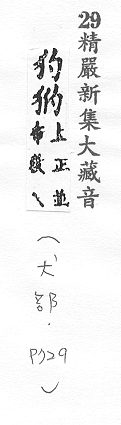 29精嚴新集大藏音
犳
上正並
(犬部.P729)